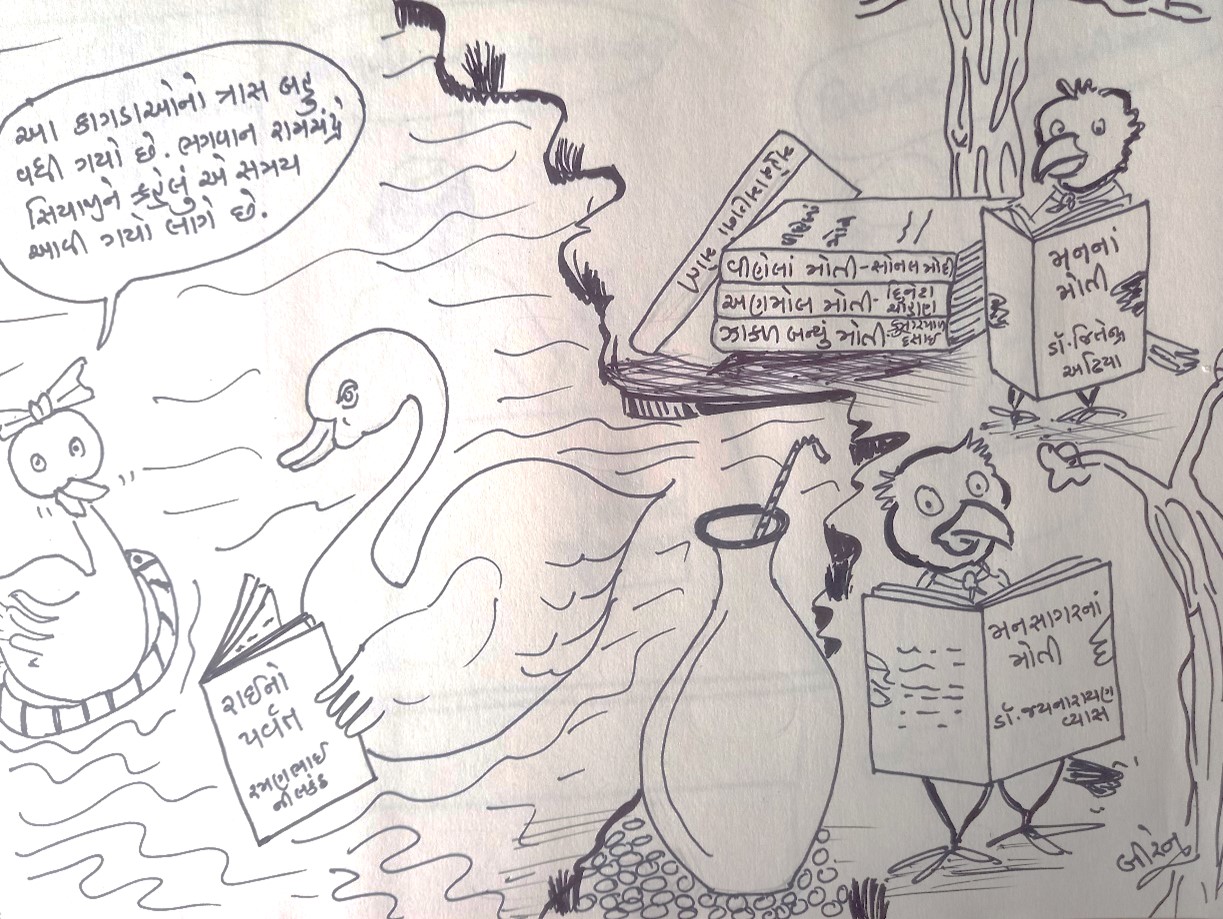 આ કાગડાઓનો ત્રાસ બહુ
વધી ગયો છે. ભગવાન રામચંદ્રે
સિયાજીને કહેલું એ સમય
આવી ગયો લાગે છે.
વીણેલાં મોતી - સોનલ મોદી
અણમોલ મોતી -
ઝાકળ બન્યું મોતી -
દેસાઈ
મનનાં
મોતી
ડૉ. જિતેન્દ્ર
અઢિયા
રાઈનો
પર્વત
રમણભાઈ
નીલકંઠ
મનસાગરનાં
મોતી
ડૉ. જયનારાયણ
વ્યાસ